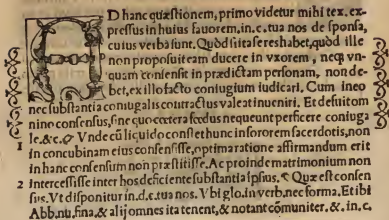 AD hanc quæstionem, primo videtur mihi tex. ex-
pressus in huius fauorem, in. c. tua nos de sponsa,
cuius verba sunt. Quòd si ita se res habet, quòd ille
non proposuit eam ducere in vxorem, neq; vn-
quam consensit in prædictam personam, non de-
bet, ex illo facto coniugium iudicari. Cum in eo
nec substantia coniugalis contractus valeat inueniri. Et defuit om
nino consensus, sine quo cætera fœdus nequeunt perficere coniuga
le. &c. Vnde cũ liquido constet hunc in sororem sacerdotis, non
1 in concubinam eius consensisse, optima ratione affirmandum erit
in hanc consensum non præstitisse. Ac proinde matrimonium non
2 intercessisse inter hos deficiente substantia ipsius. Quæ est consen
sus. Vt disponitur in. d. c. tua nos. Vbi glo. in verb. nec forma. Et ibi
Abb. nu. fina. & alij omnes ita tenent, & notant cõmuniter. &. in. c.